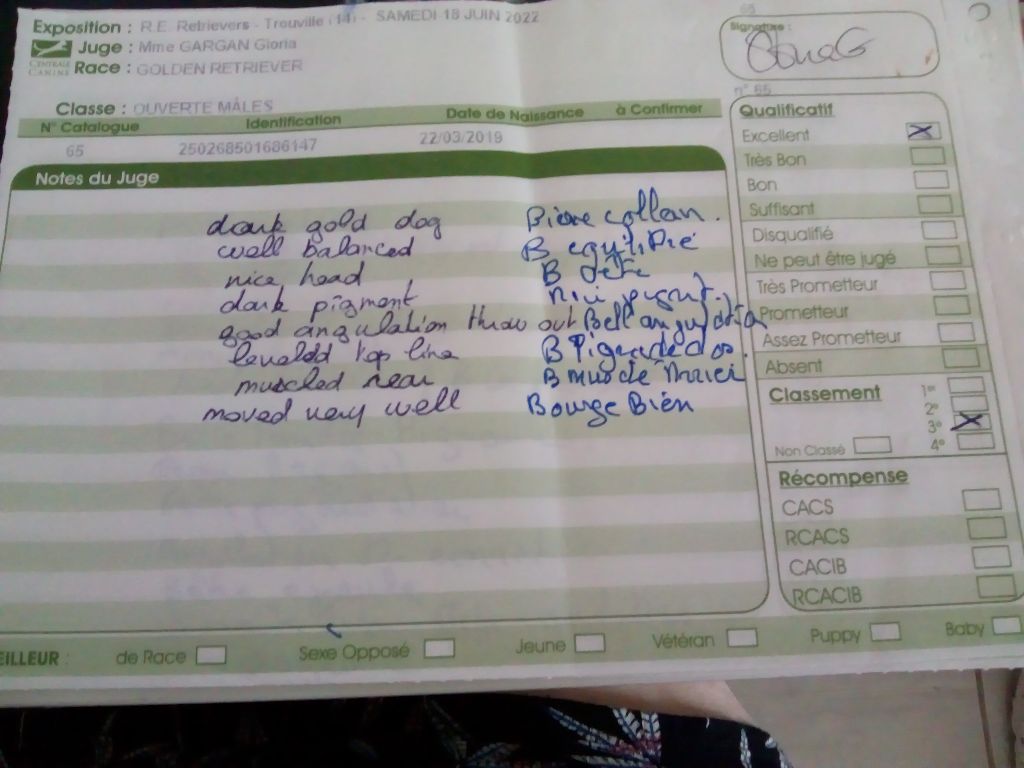 Exposition : R.E. Retrievers - Trouville (14) - SAMEDI 18 JUIN 2022
CENTRALE CANINE
Juge : Mme GARGAN Gloria
Race : GOLDEN RETRIEVER
Signature :
Classe : OUVERTE MÂLES
n° 65
N° Catalogue Identification Date de Naissance à Confirmer
65 250268501686147 22/03/2019
Notes du Juge
dark gold dog
well balanced
nice head
dark pigment
good angulation throw out
muscled rear
moved very well
B equilibré
B tete
Bouge Bien
Qualificatif
Excellent
Très Bon
Bon
Suffisant
Disqualifié
Ne peut être jugé
Très Prometteur
Prometteur
Assez Prometteur
Absent
Classement
1er
2e
3e
4e
Non Classé
Récompense
CACS
RCACS
CACIB
RCACIB
EILLEUR : de Race Sexe Opposé Jeune Vétéran Puppy Baby